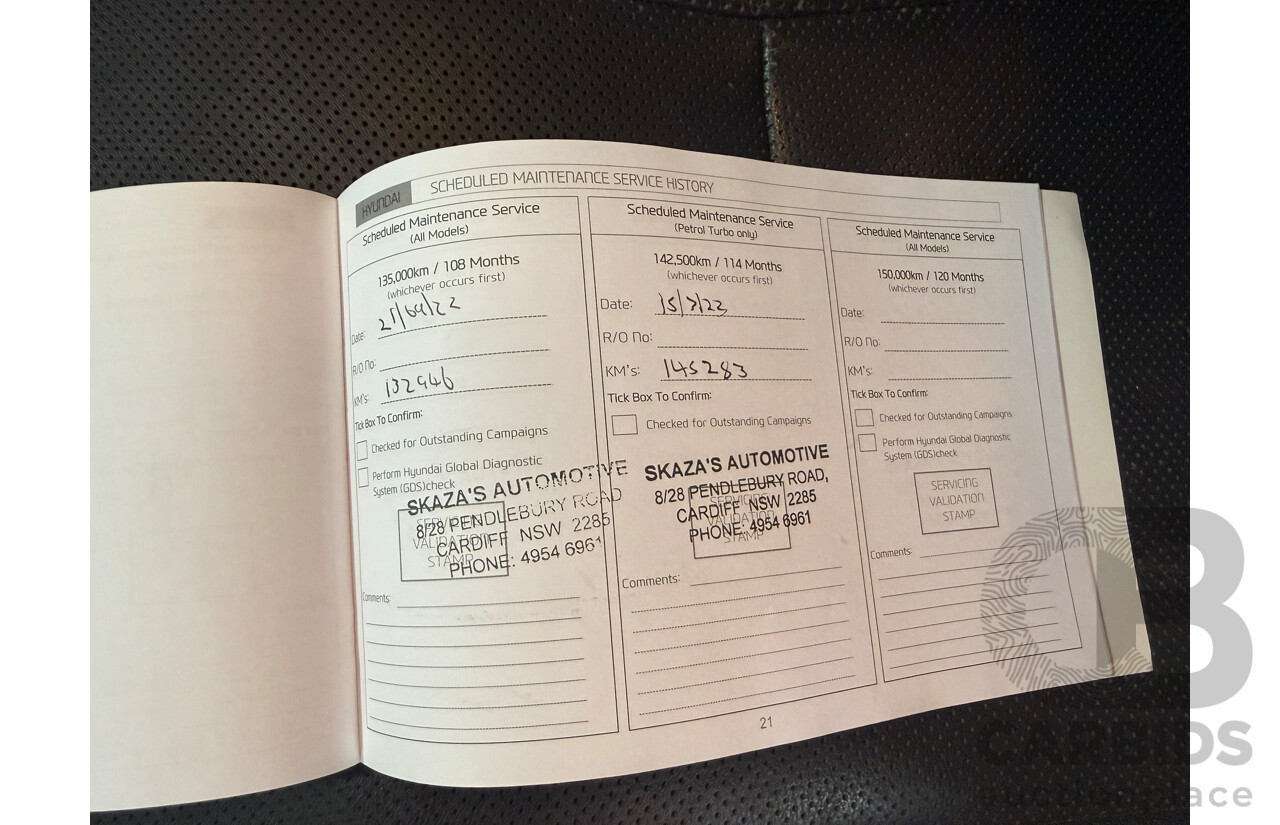 HYUNDAI
SCHEDULED MAINTENANCE SERVICE HISTORY
Scheduled Maintenance Service
(All Models)
135,000km / 108 Months
(whichever occurs first)
Date:
R/O No:
KM's: 132946
Tick Box To Confirm:
Checked for Outstanding Campaigns
Perform Hyundai Global Diagnostic
System (GDS)check
SKAZA'S AUTOMOTIVE
8/28 PENDLEBURY ROAD
CARDIFF NSW 2285
PHONE: 4954 6961
SERVICING
VALIDATION
STAMP
Comments:
Scheduled Maintenance Service
(Petrol Turbo only)
142,500km / 114 Months
(whichever occurs first)
Date: 15/7/23
R/O No:
KM's: 145283
Tick Box To Confirm:
Checked for Outstanding Campaigns
SKAZA'S AUTOMOTIVE
8/28 PENDLEBURY ROAD,
CARDIFF NSW 2285
PHONE: 4954 6961
SERVICING
VALIDATION
STAMP
Comments:
Scheduled Maintenance Service
(All Models)
150,000km / 120 Months
(whichever occurs first)
Date:
R/O No:
KM's:
Tick Box To Confirm:
Checked for Outstanding Campaigns
Perform Hyundai Global Diagnostic
System (GDS)check
SERVICING
VALIDATION
STAMP
Comments:
21
CB
CARBIDS